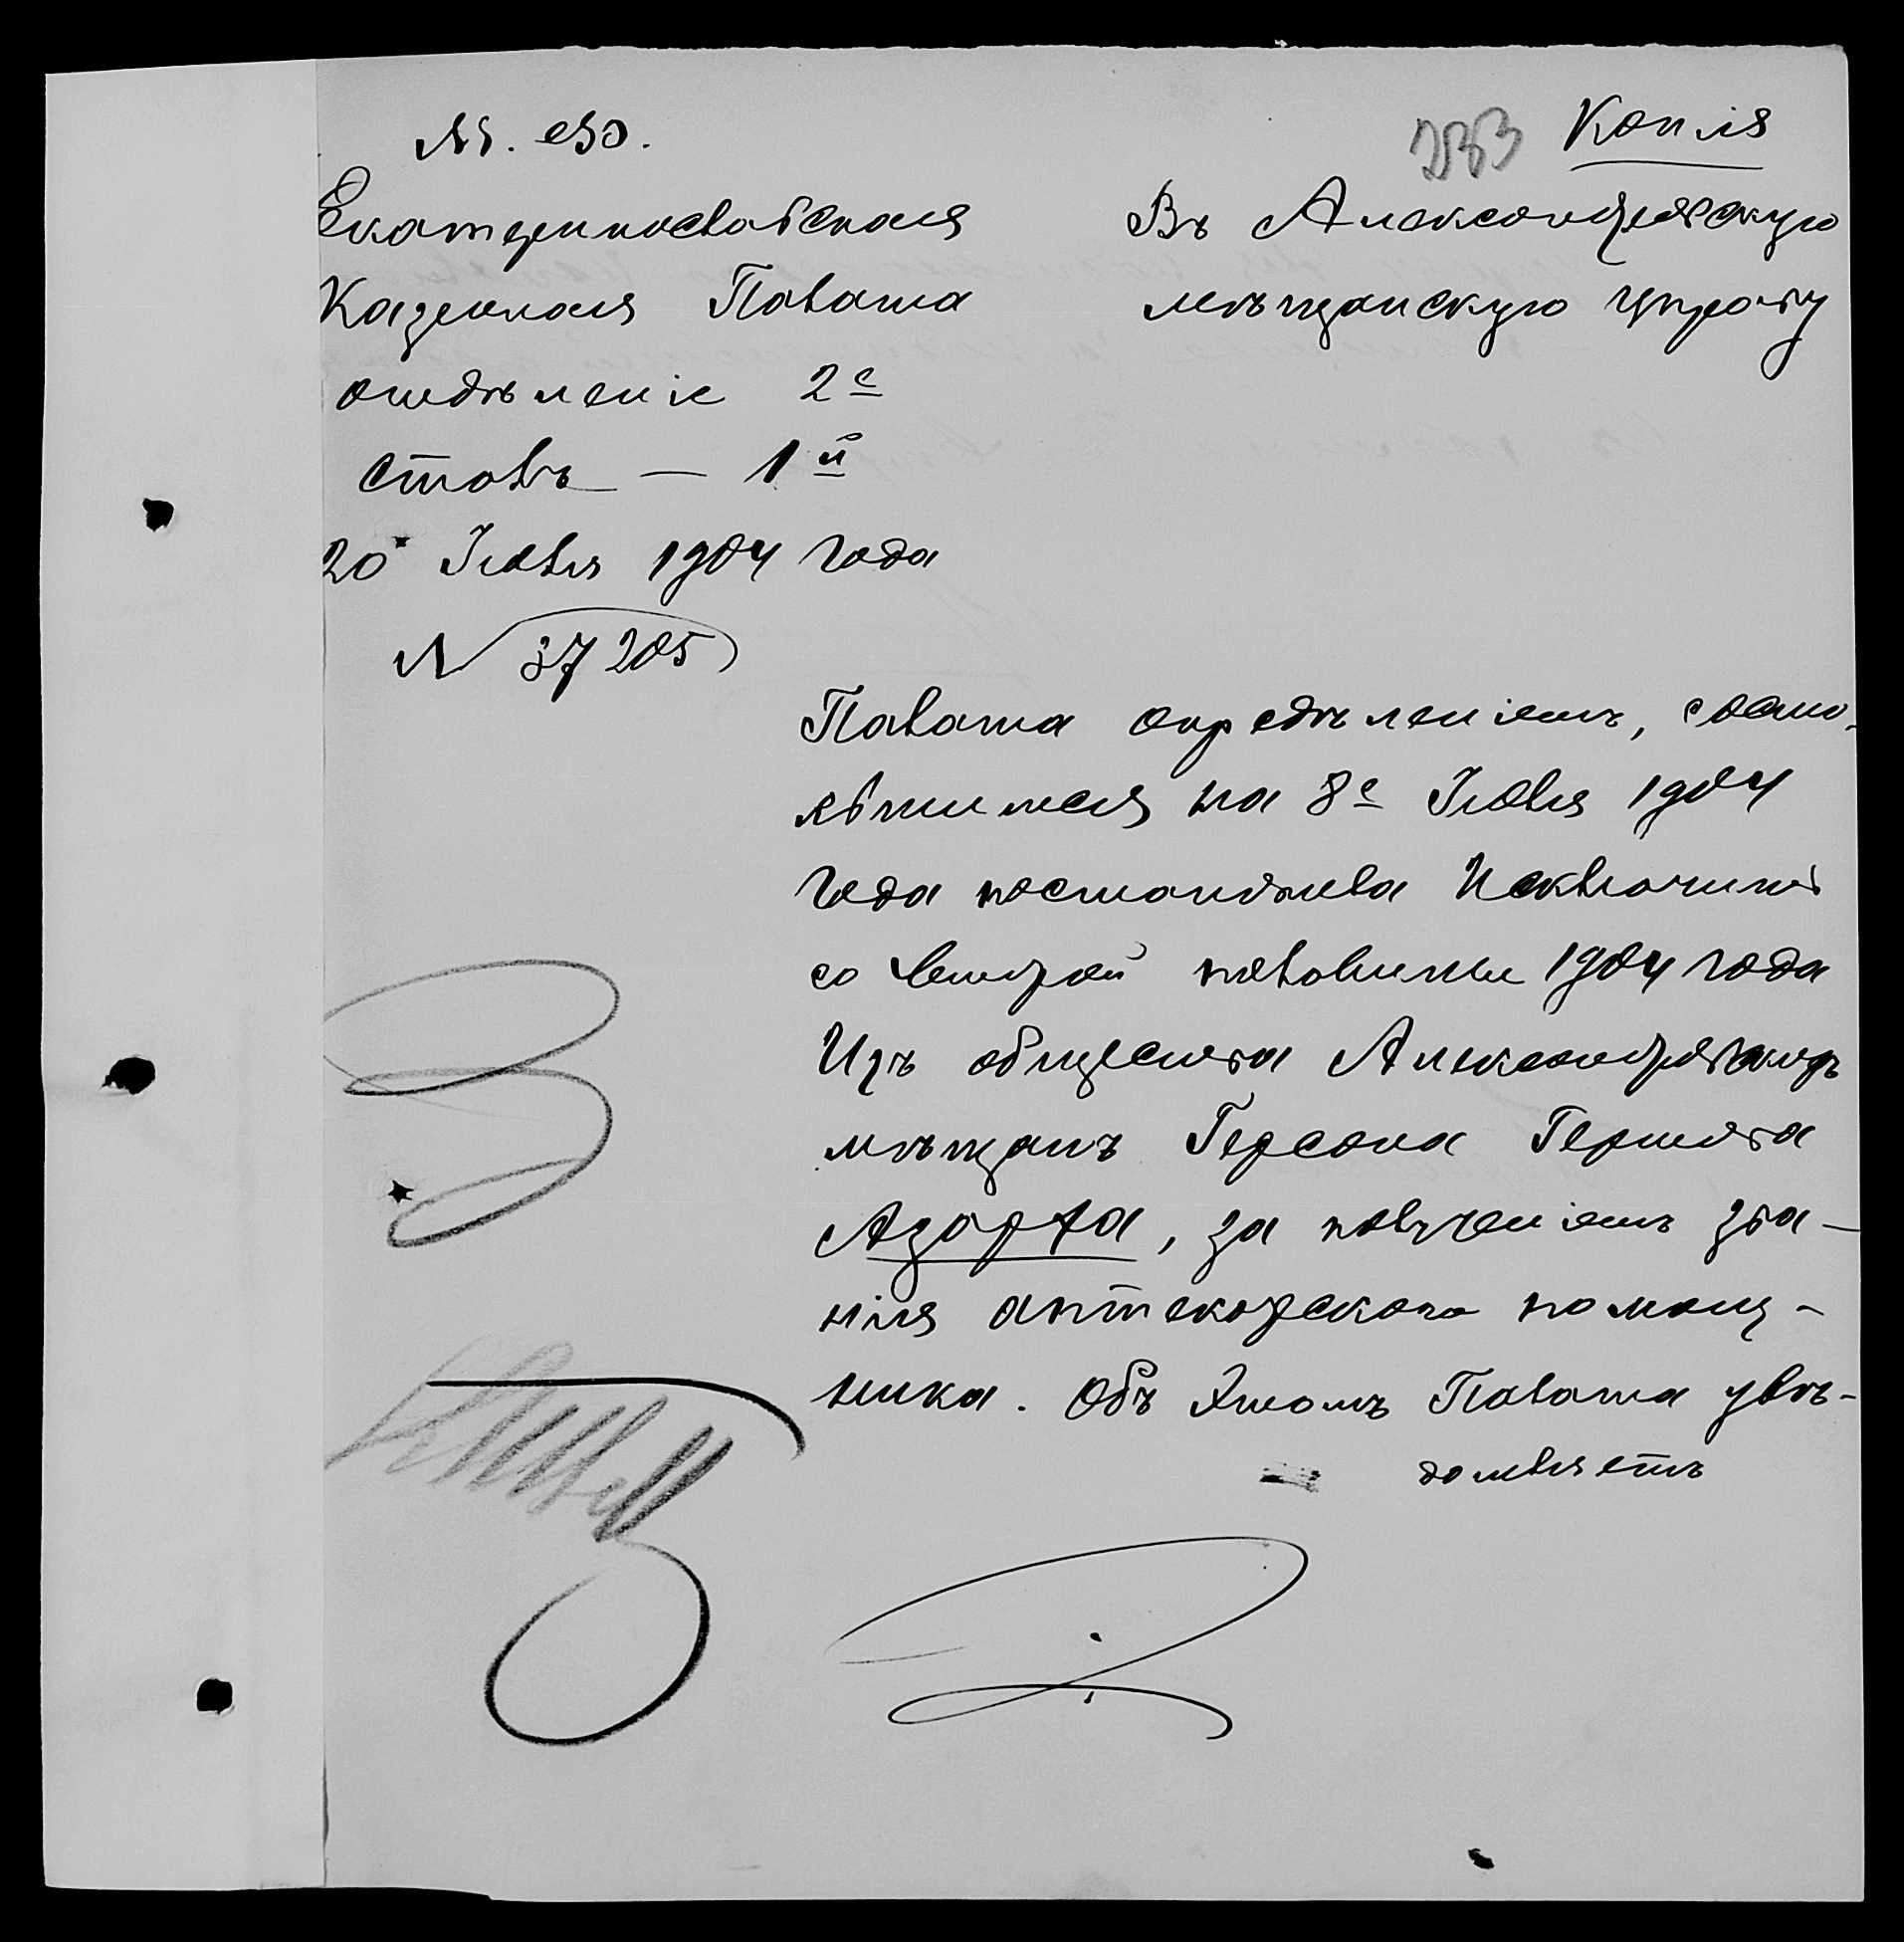 М. В. Д.
233 Копія
Екатеринославская
Казенная Палата
отдѣленіе 2е
столъ — 1й
20 Іюля 1904 года
N 37205
Въ Александровскую
мѣщанскую управу
Палата опредѣленіемъ, состо-
явшимся на 8е Іюля 1904
года постановила Исключить
со второй половины 1904 года
Изъ общества Александровскихъ
мѣщанъ Герсона Гершова
Азарха, за полученіемъ зва-
нія аптекарскаго помощ-
ника. Объ этомъ Палата увѣ-
домляетъ